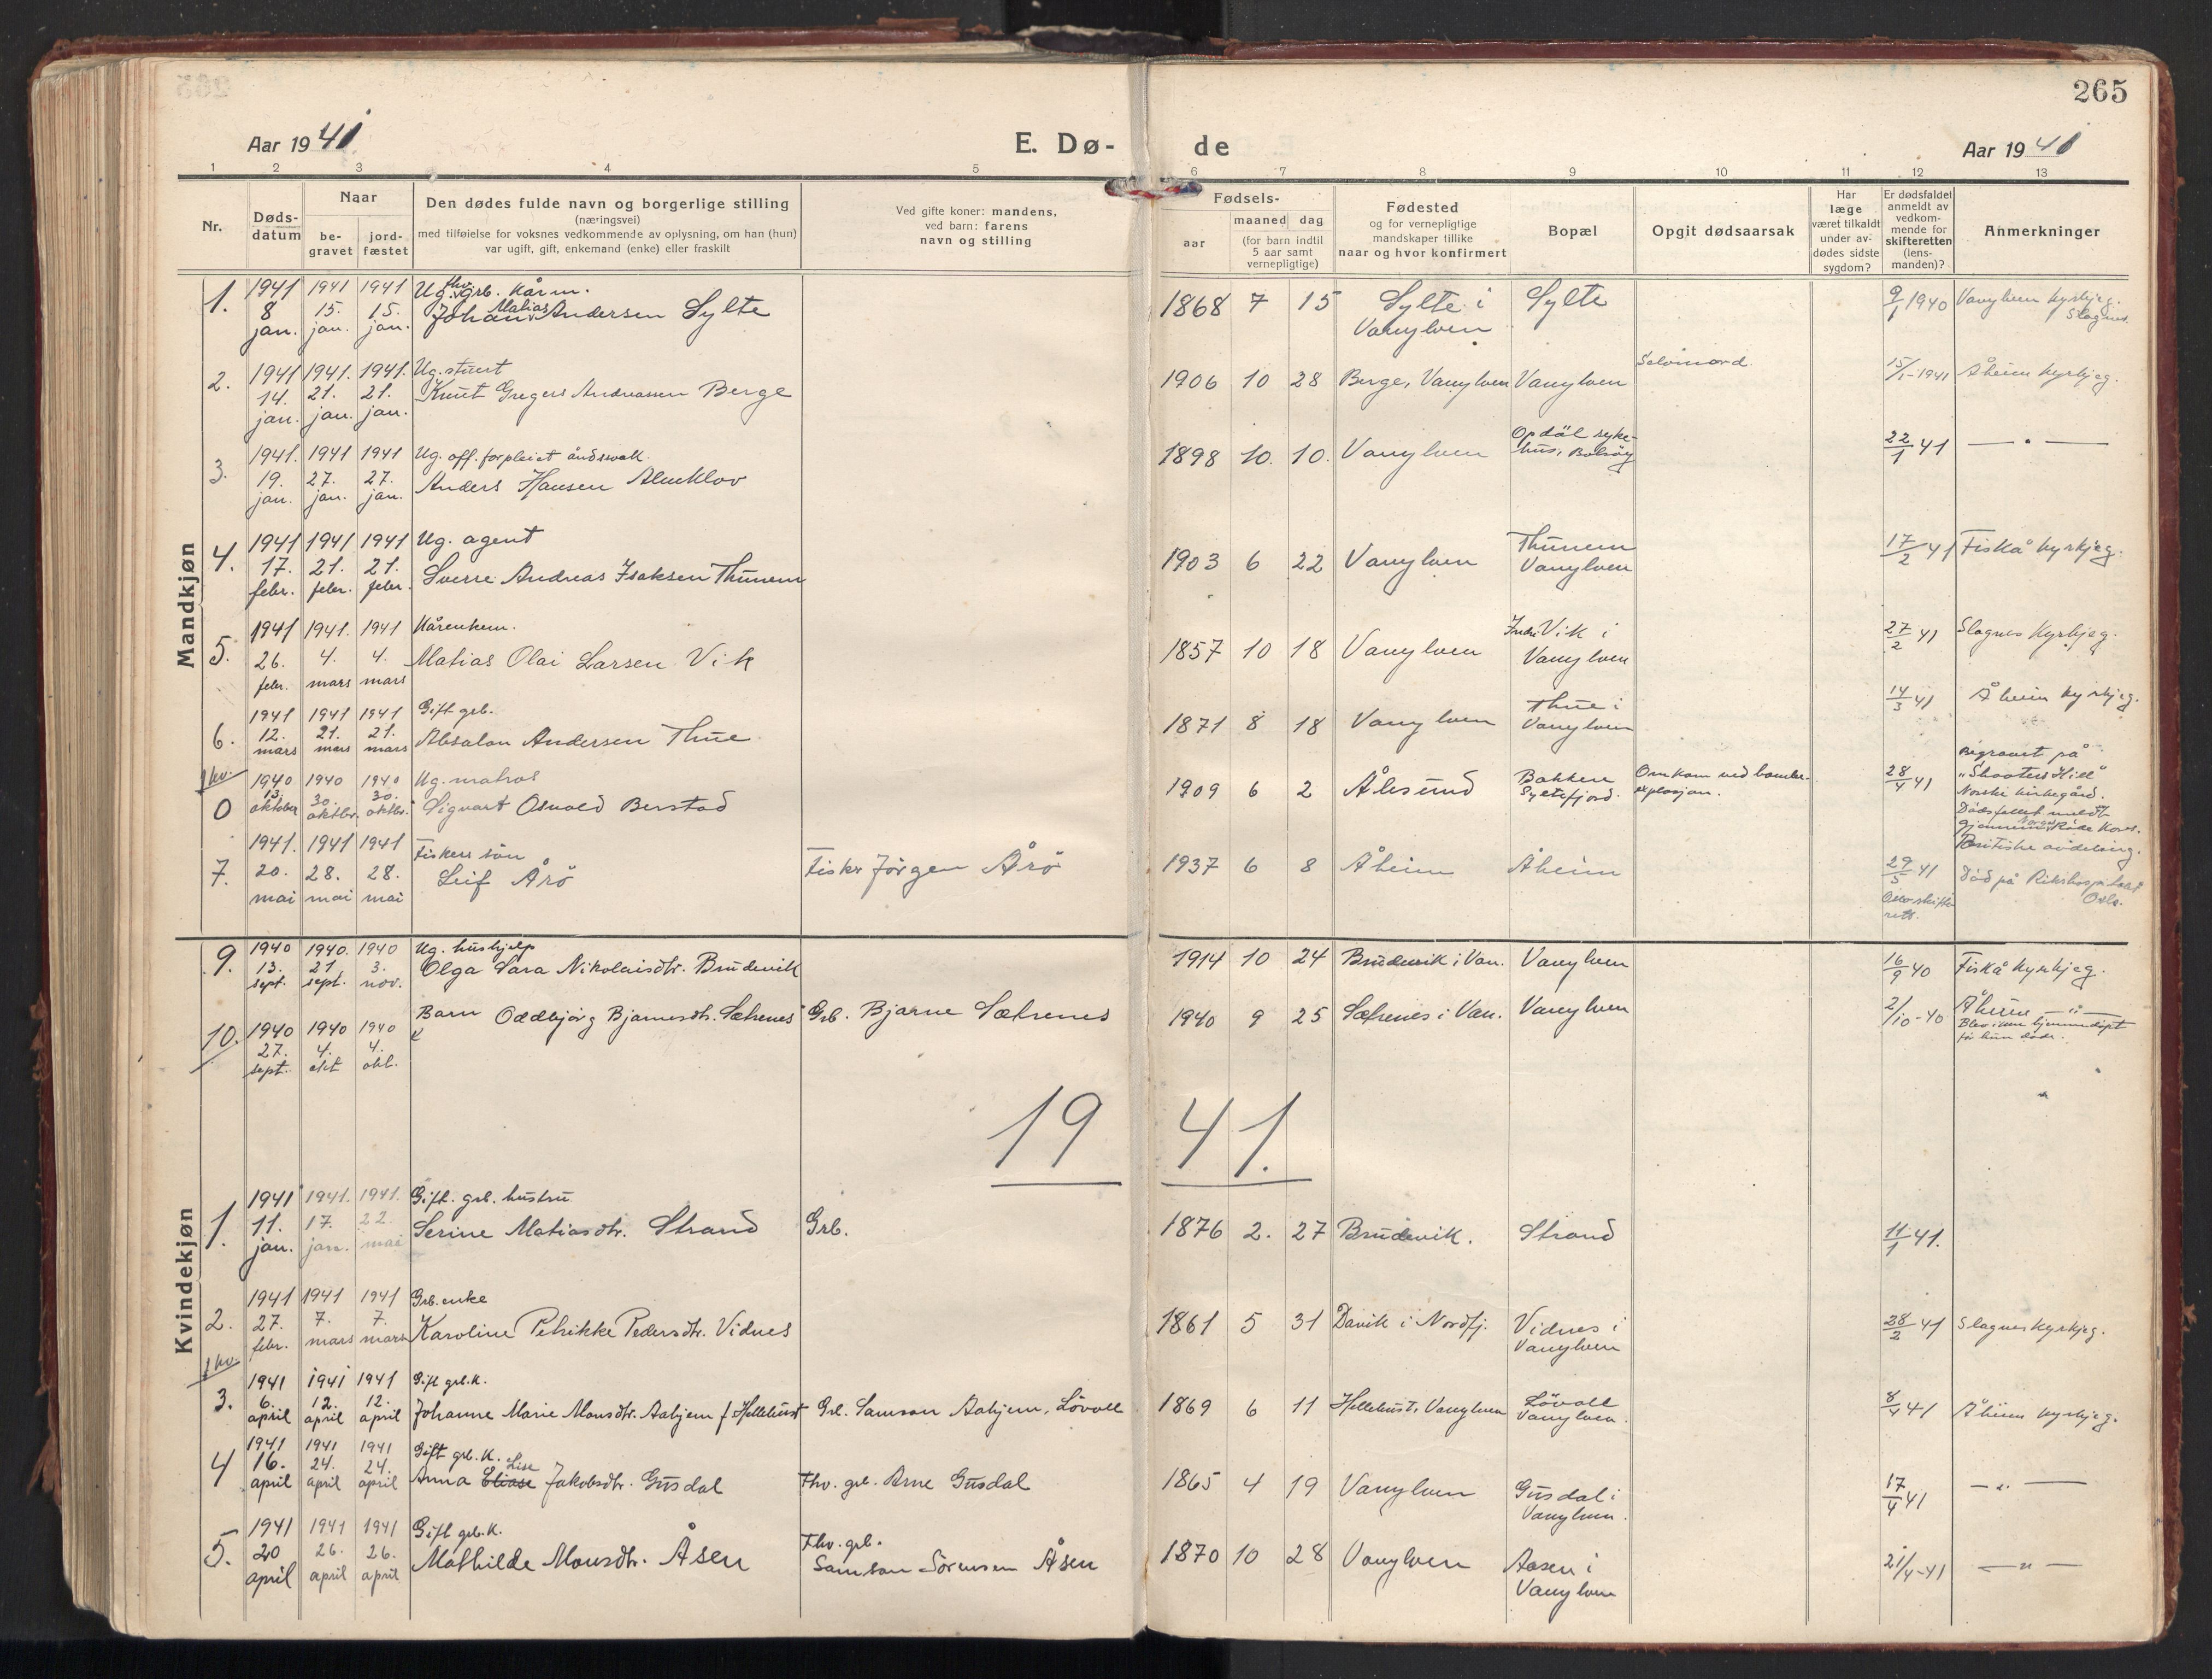 265
Aar 1941
E. Dø-
de
Aar 1941
1 2 3 4 5 6 7 8 9 10 11 12 13
Nr.
Døds-
datum
Naar
be-
gravet
jord-
fæstet
Den dødes fulde navn og borgerlige stilling
(næringsvei)
med tilføielse for voksnes vedkommende av oplysning, om han (hun)
var ugift, gift, enkemand (enke) eller fraskilt
Ved gifte koner: mandens,
ved barn: farens
navn og stilling
Fødsels-
aar
maaned dag
(for barn indtil
5 aar samt
vernepligtige)
Fødested
og for vernepligtige
mandskaper tillike
naar og hvor konfirmert
Bopæl
Opgit dødsaarsak
Har
læge
været tilkaldt
under av-
dødes sidste
sygdom?
Er dødsfaldet
anmeldt av
vedkom-
mende for
skifteretten
(lens-
manden)?
Anmerkninger
Mandkjøn
1. 1941 8 jan. 1941 15. jan. 1941 15. jan.
Ug. fhv. grb. Kårm.
Johan Matias Andersen Sylte
1868 7 15 Sylte i Vanylven Sylte 9/1 1940 Vanylven kyrkjeg. Slagnes.
2. 1941 14. jan. 1941. 21. jan. 1941. 21. jan.
Ug. stuert
Knut Gregers Andreassen Berge
1906 10 28 Berge, Vanylven Vanylven Selvmord. 15/1-1941 Åheim kyrkjeg.
3. 1941. 19. jan. 1941 27. jan. 1941 27. jan.
Ug. off. forpleiet åndssvak.
Anders Hansen Almklov
1898 10. 10. Vanylven Opdøl syke-
hus, Bolsøy 22/1 41 — " —
4. 1941 17. febr. 1941 21. febr. 1941 21. febr.
Ug. agent
Sverre Andreas Isaksen Thunem
1903 6 22 Vanylven Thunem Vanylven 17/2 41 Fiskå kyrkjeg.
5. 1941 26. febr. 1941. 4. mars 1941 4. mars
Kårenkem.
Matias Olai Larsen Vik
1857 10 18 Vanylven Indre Vik i Vanylven 27/2 41 Slagnes kyrkjeg.
6. 1941 12. mars 1941 21. mars 1941 21. mars
Gift grb.
Absalon Andersen Thue
1871 8 18 Vanylven Thue i Vanylven 14/3 41 Åheim kyrkjeg.
1 kv.
0 1940 13. oktober 1940 30. oktbr. 1940 30. oktbr.
Ug. matros
Sigvart Osvald Berstad
1909 6 2 Ålesund Bakken Syltefjord. Omkom ved bombe-
explosjon. 28/4 41
Begravet på
"Shooters Hill"
Norske kirkegård.
Dødsfallet meldt
gjennem Norges Røde Kors.
Britiske avdeling.
7. 1941. 20. mai 1941 28. mai 1941 28. mai
Fiskers søn
Leif Årö Fisker Jørgen Årö
1937 6 8 Åheim Åheim 29/5 41 Oslo skifte-
rett. Død på Rikshospitalet Oslo.
Kvindekjøn
9. 1940 13. sept. 1940. 21 sept. 1940 3. nov.
Ug. hushjelp
Olga Sara Nikolaisdtr. Brudevik
1914 10 24 Brudevik i Van. Vanylven 16/9 40 Fiskå kyrkjeg.
10. 1940 27. sept. 1940 4. okt 1940 4. okt.
Barn Oddbjørg Bjarnesdtr. Sætrenes Grb. Bjarne Sætrenes
1940 9 25 Sætrenes i Van. Vanylven 2/10-40 Åheim — " —
Blev ikke hjemmedøpt
før hun døde.
1941.
1. 1941 11. jan. 1941. 17. jan. 1941. 22. mai
Gift. grb. hustru
Serine Matiasdtr. Strand Grb.
1876 2. 27 Brudevik. Strand 11/1 41.
2. 1941 27. febr. 1941 7. mars 1941 7. mars
Grb. enke
Karoline Petrikke Pedersdtr. Vidnes
1861 5 31 Davik i Nordfj. Vidnes i Vanylven 28/2 41 Slagnes kyrkjeg.
1 kv.
3. 1941 6. april 1941 12. april 1941 12. april
Gift grb.k.
Johanne Marie Monsdtr. Aahjem f. Hellehust Grb. Samson Aahjem, Løvoll
1869 6 11 Hellehust, Vanylven Løvoll Vanylven. 8/4 41 Åheim kyrkjeg.
4 1941 16. april 1941 24. april 1941 24. april
Gift grb. K.
Anna Eliase Lise Jakobsdtr. Gusdal Fhv. grb. Arne Gusdal
1865 4 19 Vanylven Gusdal i Vanylven. 17/4 41 — " —
5. 1941 20 april 1941 26. april 1941 26. april
Gift grb. K.
Mathilde Monsdtr. Åsen Fhv. grb.
Samson Sørensen Åsen
1870 10 28 Vanylven Aasen i Vanylven 21/4-41 — " —